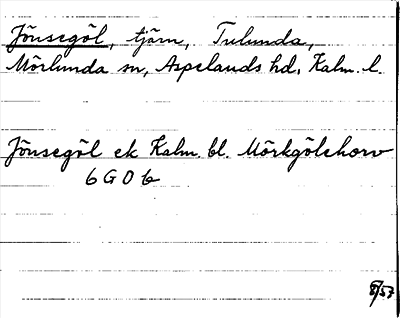 Jönsegöl, tjärn, Tulunda,
Mörlunda sn, Aspelands hd. Kalm. l.
Jönsegöl ek Kalm. bl. Mörkgölehorv
6 G O b
8/57